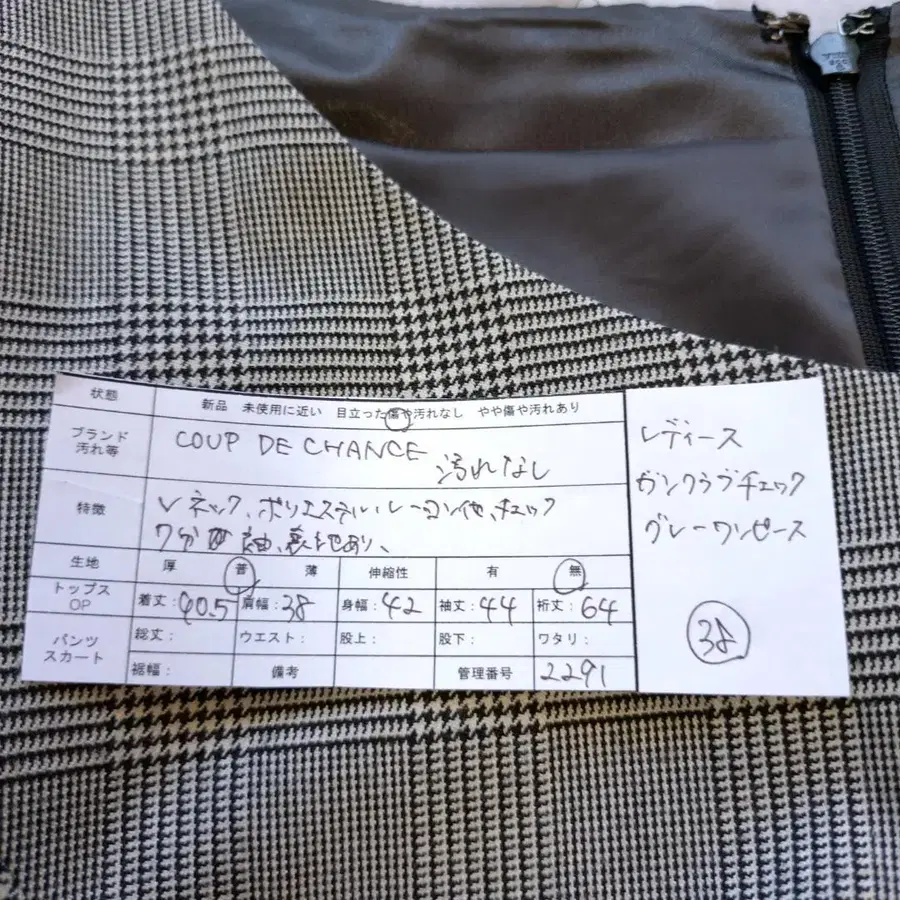 状態
新品 未使用に近い 目立った傷や汚れなし やや傷や汚れあり
ブランド
汚れ等
COUP DE CHANCE
汚れなし
特徴
Vネック、ポリエステル、レーヨン他、チェック
7分袖、裏地あり、
生地 厚 普 薄 伸縮性 有 無
トップス
OP
着丈:90.5 肩幅:38 身幅:42 袖丈:44 裄丈:64
パンツ
スカート
総丈: ウエスト: 股上: 股下: ワタリ:
裾幅: 備考 管理番号 2291
レディース
ガンクラブチェック
グレーワンピース
38